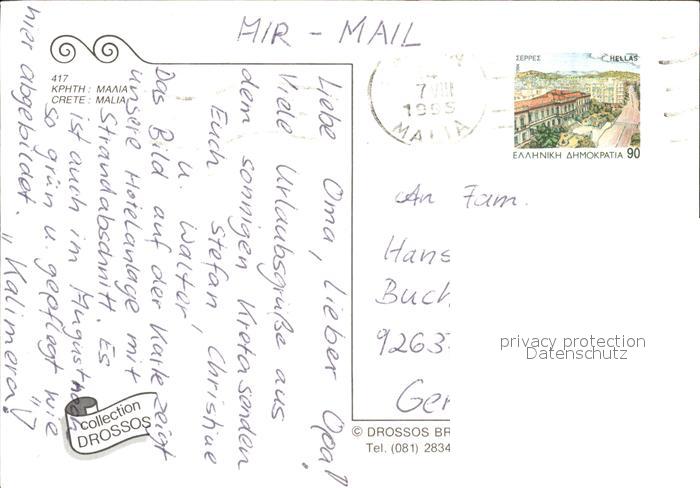 AIR - MAIL
417
ΚΡΗΤΗ : ΜΑΛΙΑ
CRETE : MALIA
Liebe Oma, Lieber Opa!
Viele Urlaubsgrüße aus
dem sonnigen Kreta senden
Euch Stefan, Christine
u. Walter,
Das Bild auf der Karte zeigt
unsere Hotelanlage mit
Strandabschnitt. Es
ist auch im August noch
so grün u. gepflegt wie
hier abgebildet. "Kalimera!"
collection
DROSSOS
7 VIII
1995
ΜΑΛΙΑ
ΣΕΡΡΕΣ HELLAS
ΕΛΛΗΝΙΚΗ ΔΗΜΟΚΡΑΤΙΑ 90
An Fam.
Hans
Buch
9263
Ger
privacy protection
Datenschutz
© DROSSOS BR
Tel. (081) 2834